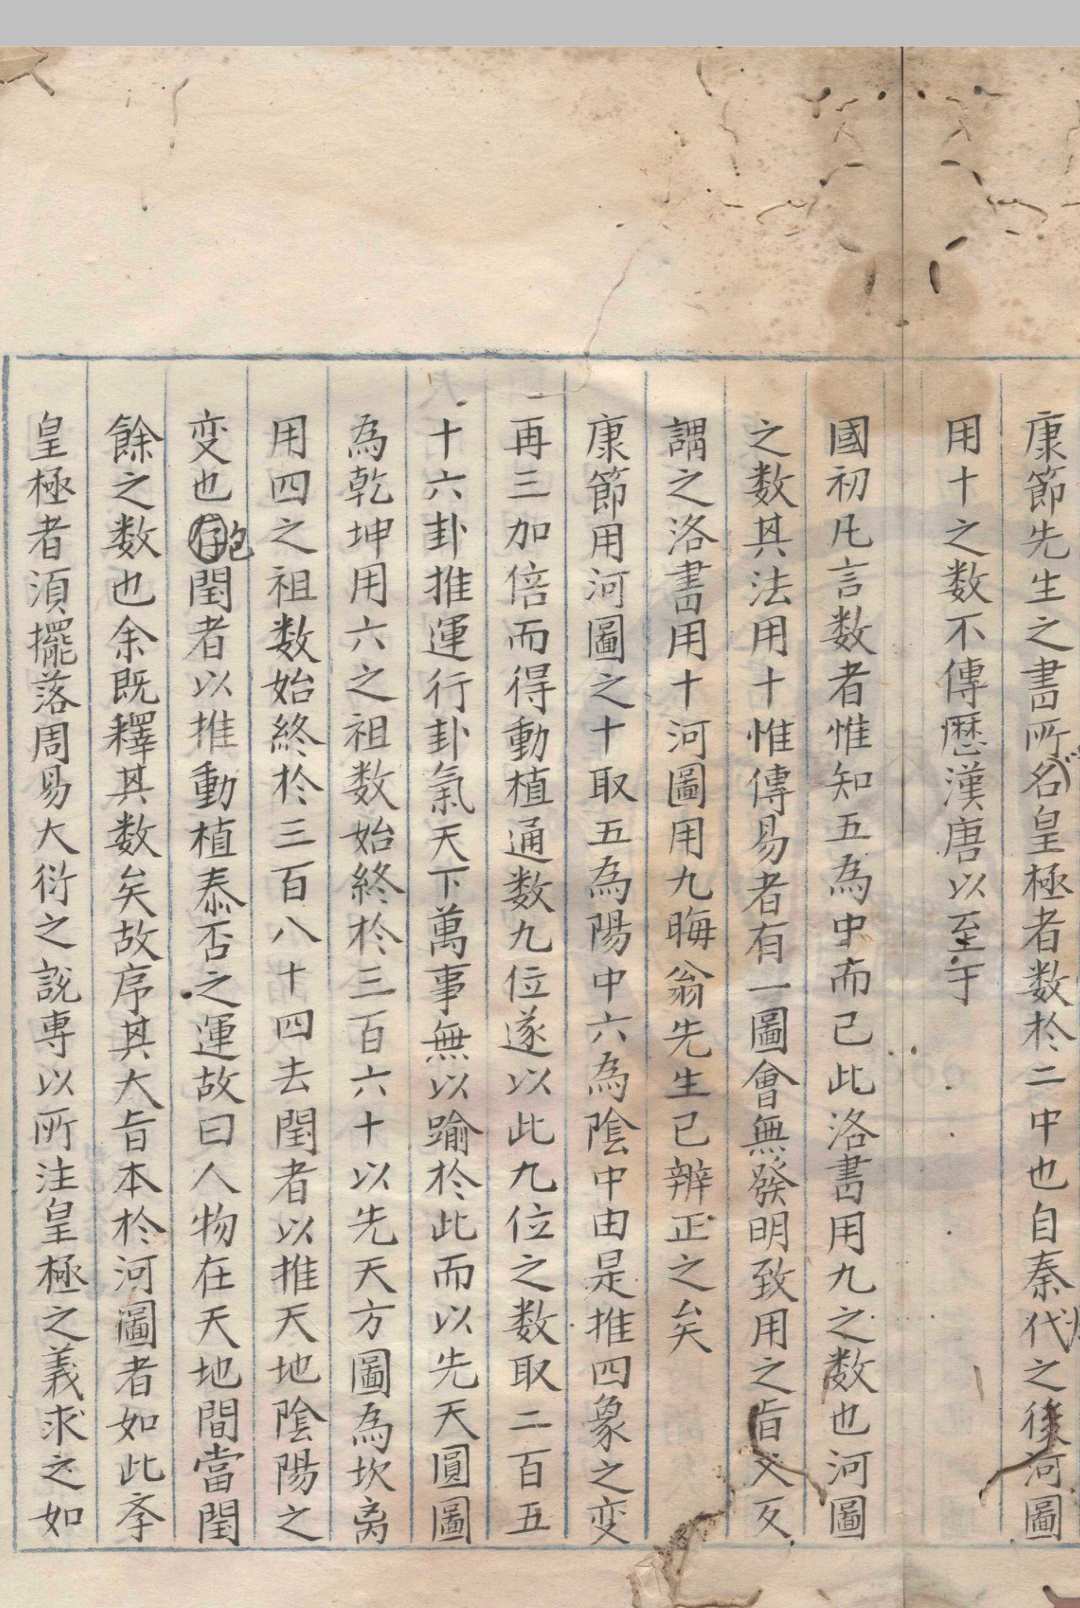 康節先生之書所名皇極者数於二中也自秦代之後河圖
用十之数不傳歷漢唐以至于
國初凡言数者惟知五為中而已此洛書用九之数也河圖
之数其法用十惟傳易者有一圖會無發明致用之旨又反
謂之洛書用十河圖用九晦翁先生已辨正之矣
康節用河圖之十取五為陽中六為陰中由是推四象之变
再三加倍而得動植通数九位遂以此九位之数取二百五
十六卦推運行卦氣天下萬事無以踰於此而以先天圓圖
為乾坤用六之祖数始終於三百六十以先天方圖為坎离
用四之祖数始終於三百八十四去閏者以推天地陰陽之
变也存閏者以推動植泰否之運故曰人物在天地間當閏
餘之数也余既釋其数矣故序其大旨本於河圖者如此李
皇極者須擺落周易大衍之說專以所注皇極之義求之如